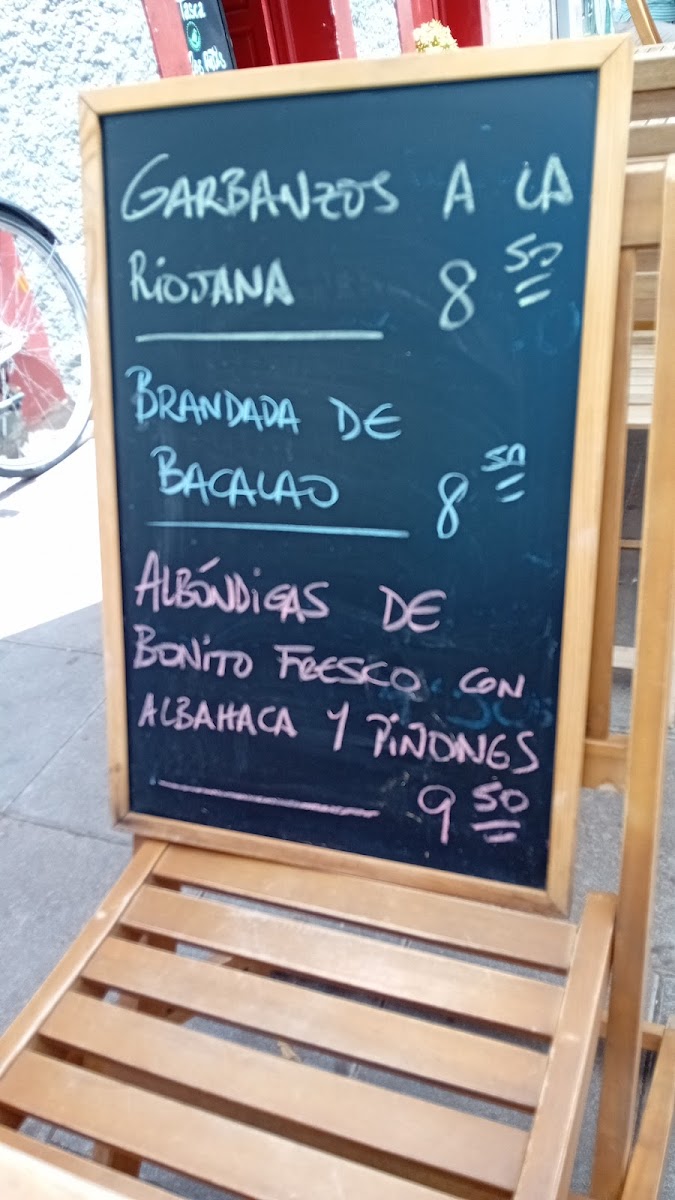 Tasca
GARBANZOS A LA
RIOJANA 8 50
BRANDADA DE
BACALAO 8 50
ALBÓNDIGAS DE
BONITO FRESCO CON
ALBAHACA Y PIÑONES
9 50